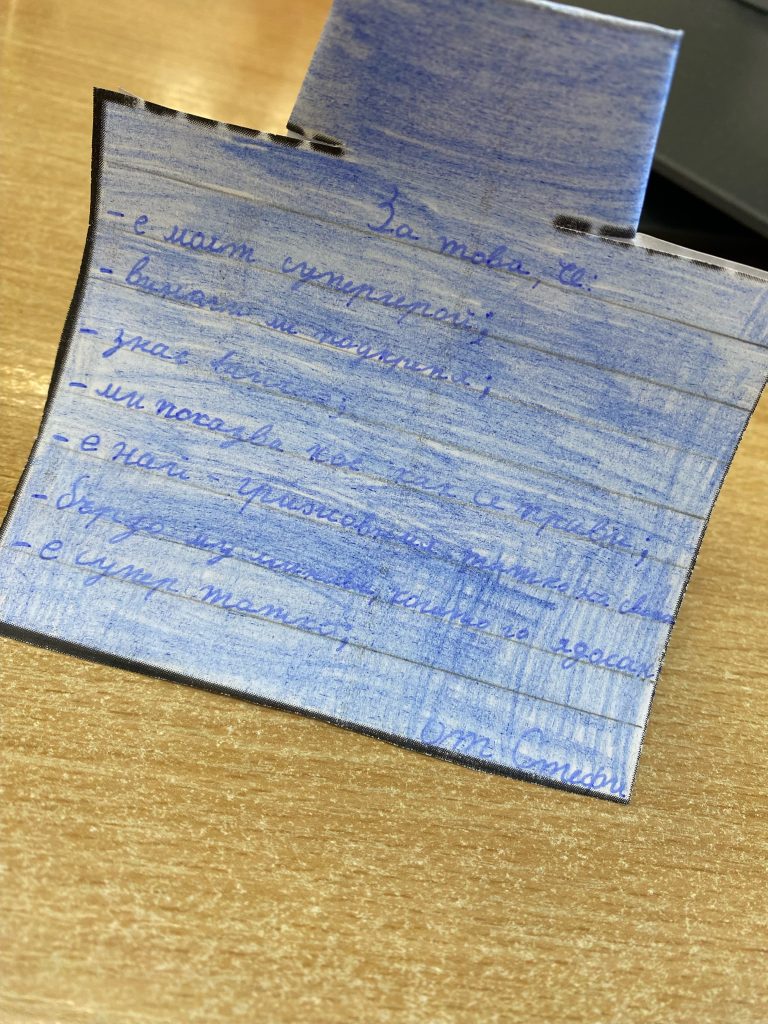 За това, че:
- е моят супергерой;
- винаги ме подкрепя;
- знае
- ми показва кое как се прави;
- е най - грижовния татко на света
- бързо му минава, когато го ядосам
- е супер татко;
от Стефи